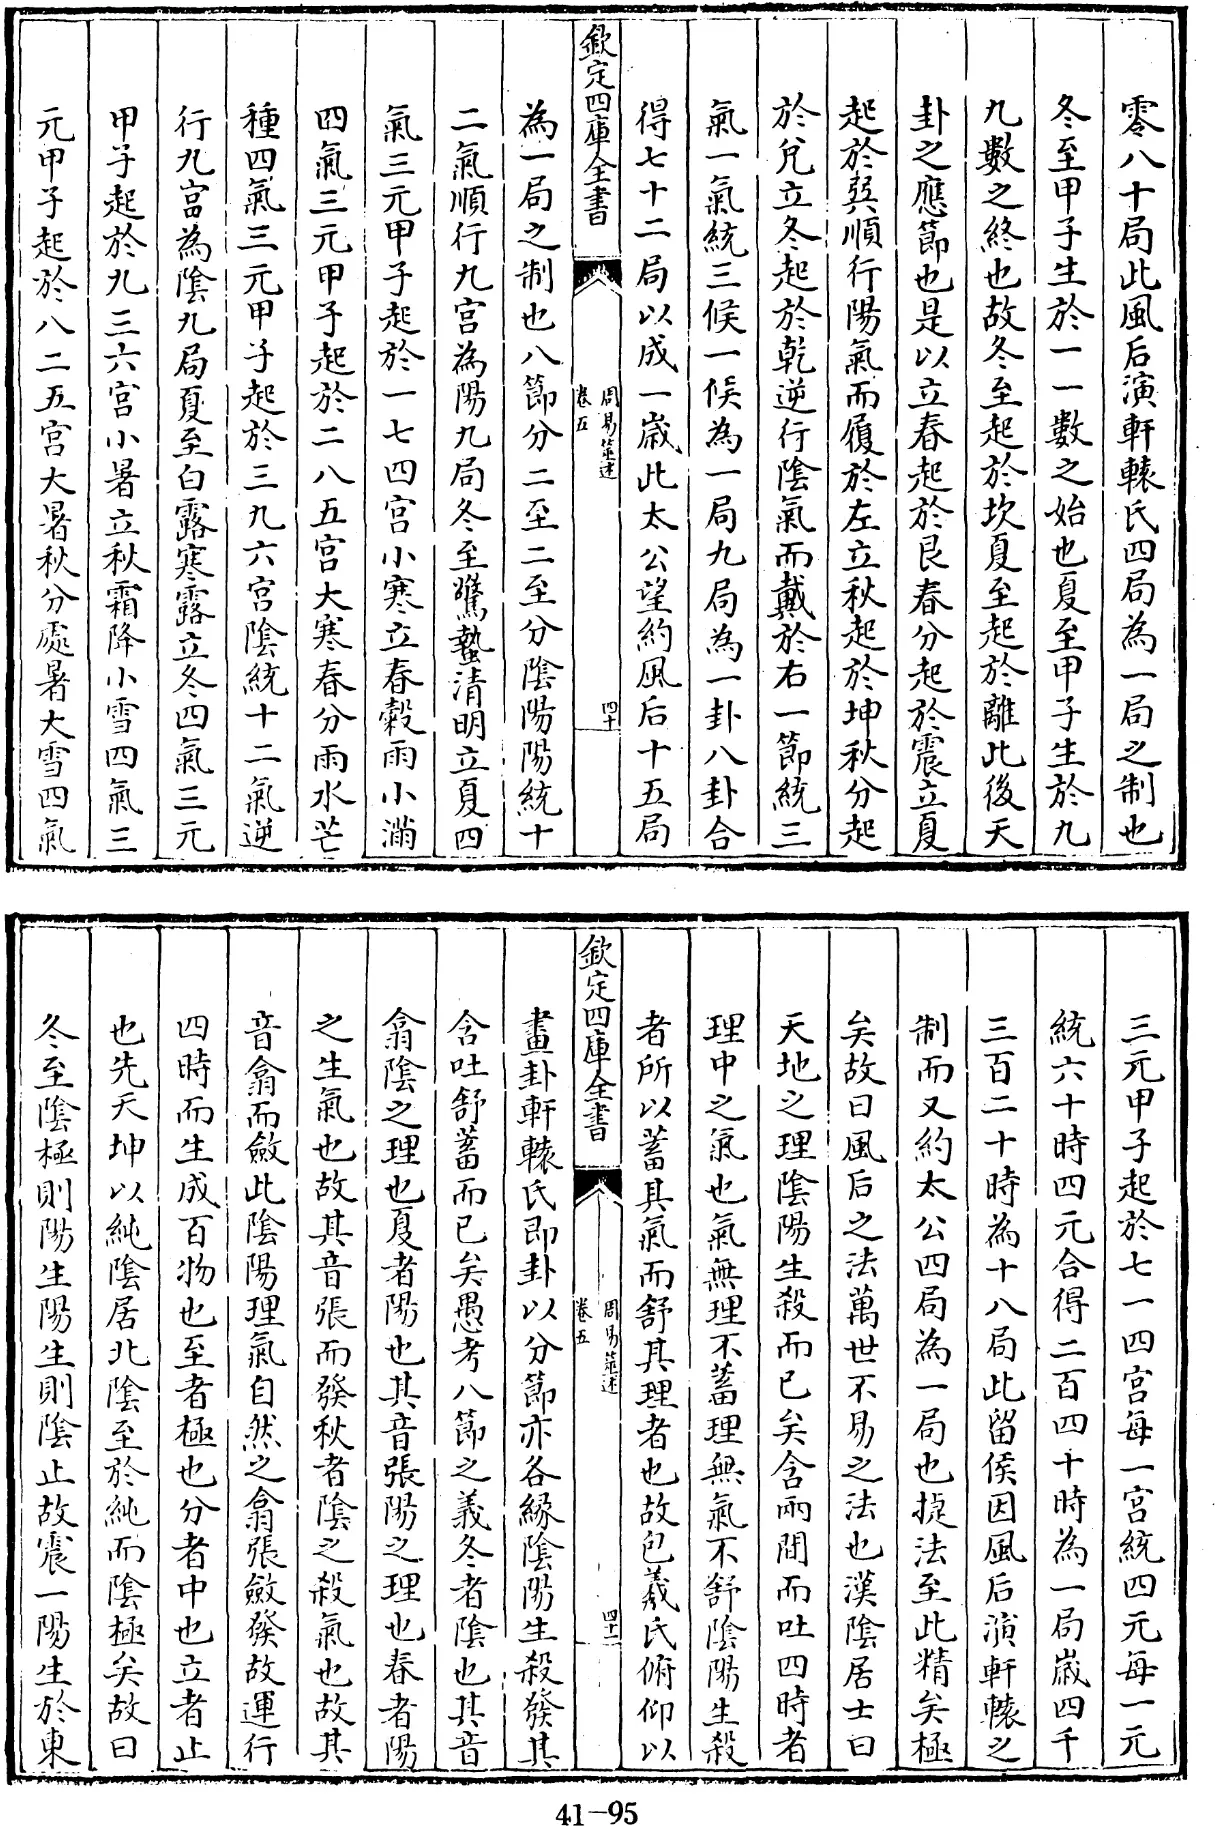 零八十局此風后演軒轅氏四局為一局之制也
冬至甲子生於一一數之始也夏至甲子生於九
九數之終也故冬至起於坎夏至起於離此後天
卦之應節也是以立春起於艮春分起於震立夏
起於巽順行陽氣而履於左立秋起於坤秋分起
於兌立冬起於乾逆行陰氣而戴於右一節統三
氣一氣統三候一候為一局九局為一卦八卦合
得七十二局以成一歲此太公望約風后十五局
欽定四庫全書
周易筮述
卷五
四十
為一局之制也八節分二至二至分陰陽陽統十
二氣順行九宮為陽九局冬至驚蟄清明立夏四
氣三元甲子起於一七四宮小寒立春穀雨小滿
四氣三元甲子起於二八五宮大寒春分雨水芒
種四氣三元甲子起於三九六宮陰統十二氣逆
行九宮為陰九局夏至白露寒露立冬四氣三元
甲子起於九三六宮小暑立秋霜降小雪四氣三
元甲子起於八二五宮大暑秋分處暑大雪四氣
三元甲子起於七一四宮每一宮統四元每一元
統六十時四元合得二百四十時為一局歲四千
三百二十時為十八局此留侯因風后演軒轅之
制而又約太公四局為一局也捷法至此精矣極
矣故曰風后之法萬世不易之法也漢陰居士曰
天地之理陰陽生殺而已矣含兩間而吐四時者
理中之氣也氣無理不蓄理無氣不舒陰陽生殺
者所以蓄其氣而舒其理者也故包羲氏俯仰以
欽定四庫全書
周易筮述
卷五
四十一
畫卦軒轅氏即卦以分節亦各緣陰陽生殺發其
含吐舒蓄而已矣愚考八節之義冬者陰也其音
翕陰之理也夏者陽也其音張陽之理也春者陽
之生氣也故其音張而發秋者陰之殺氣也故其
音翕而斂此陰陽理氣自然之翕張斂發故運行
四時而生成百物也至者極也分者中也立者止
也先天坤以純陰居北陰至於純而陰極矣故曰
冬至陰極則陽生陽生則陰止故震一陽生於東
41-95